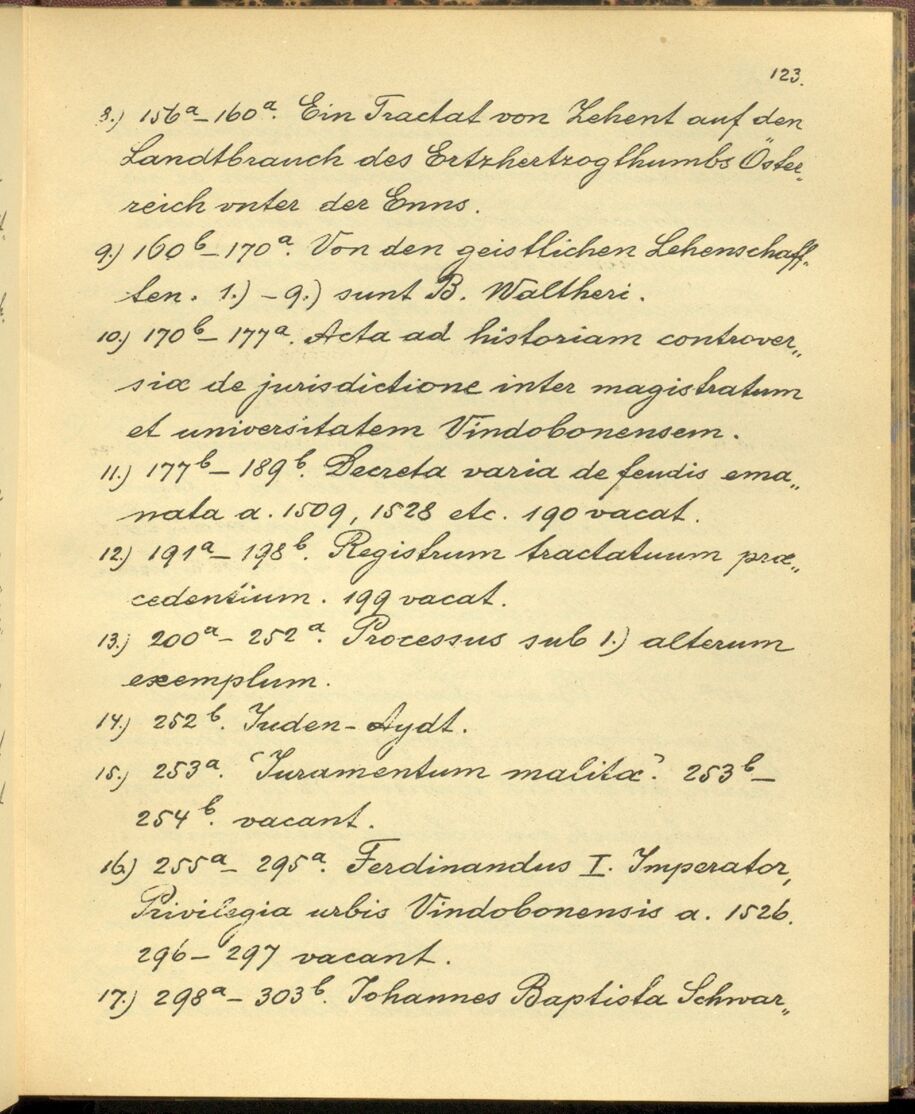 123.
8.) 156a_160a. Ein Tractat von Zehent auf den
Landtbrauch des Ertzhertzogthumbs Öster„
reich vnter der Enns.
9.) 160b_170a. Von den geistlichen Lehenschaff„
ten. 1.) - 9.) sunt B. Waltheri.
10.) 170b_177a. Acta ad historiam controver„
siæ de jurisdictione inter magistratum
et universitatem Vindobonensem.
11.) 177b_189b. Decreta varia de feudis ema„
nata a. 1509, 1528 etc. 190 vacat.
12.) 191a_198b. Registrum tractatuum præ„
cedentium. 199 vacat.
13.) 200a_252a. Processus sub 1.) alterum
exemplum.
14.) 252b. Juden-Aydt.
15.) 253a. "Juramentum malitæ". 253b_
254b. vacant.
16.) 255a_295a. Ferdinandus I. Imperator,
Privilegia urbis Vindobonensis a. 1526.
296_297 vacant.
17.) 298a_303b. Johannes Baptista Schwar„